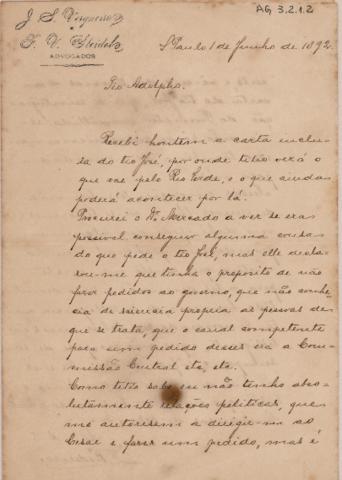 AG 3.2.1.2
J. S. Vergueiro
F. V. Steidel
ADVOGADOS
S. Paulo 1 de Junho de 1892.
Tio Adolpho.
Recebi hontem a carta inclu-
sa do tio José, por onde titio verá o
que vae pelo Rio Verde, e o que ainda
poderá acontecer por lá.
Procurei o Dr. Mercado a ver se era
possivel conseguir alguma cousa
do que pede o tio José, mas elle decla-
rou-me que tinha o proposito de não
fazer pedidos ao governo, que não conhe-
cia de sciencia propria as pessoas de
que se trata, que o canal competente
para um pedido desses era a Com-
missão Central etc, etc.
Como titio sabe eu não tenho abso-
lutamente relações politicas, que
me autorisem a dirigir-me ao
Cesar e fazer um pedido, mas é